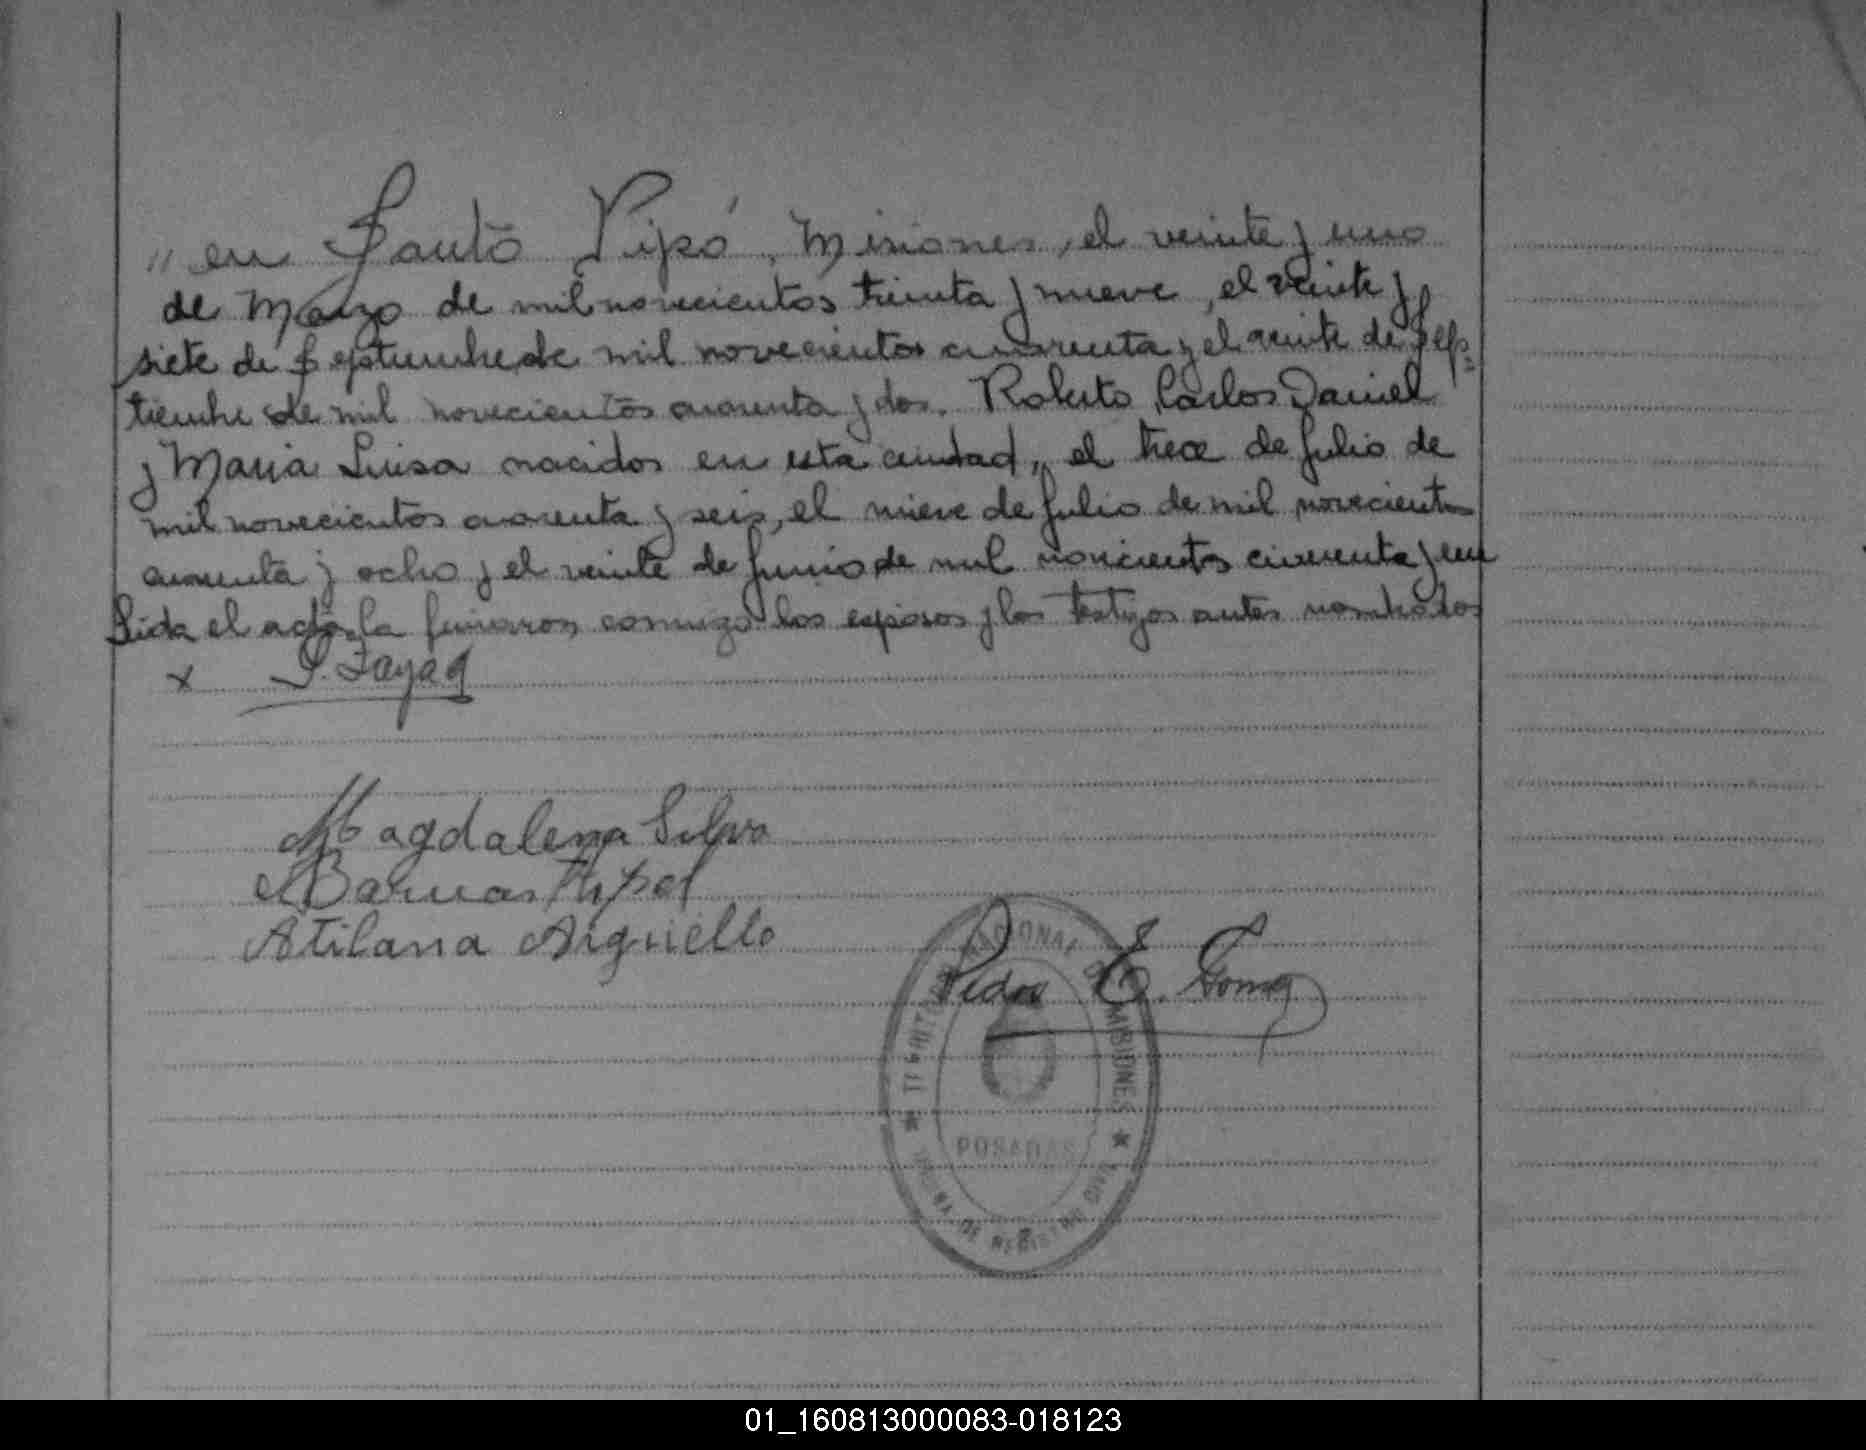 " en Santo Pipó, Misiones, el veinte y uno
de Marzo de mil novecientos treinta y nueve, el veinte y
siete de Septiembre de mil novecientos cuarenta y el veinte de Sep-
tiembre de mil novecientos cuarenta y dos. Roberto, Carlos Daniel
y Maria Luisa nacidos en esta ciudad, el trece de Julio de
mil novecientos cuarenta y seis, el nueve de Julio de mil novecientos
cuarenta y ocho y el veinte de Junio de mil novecientos cincuenta y un
Lida el acta, la firmaron conmigo los esposos y los testigos antes nombrados
x
Magdalena Silva
Atilana Argüello
Pedro E. Gomez
TERRITORIO NACIONAL DE MISIONES
POSADAS
OFICINA DE REGISTRO CIVIL
01_160813000083-018123